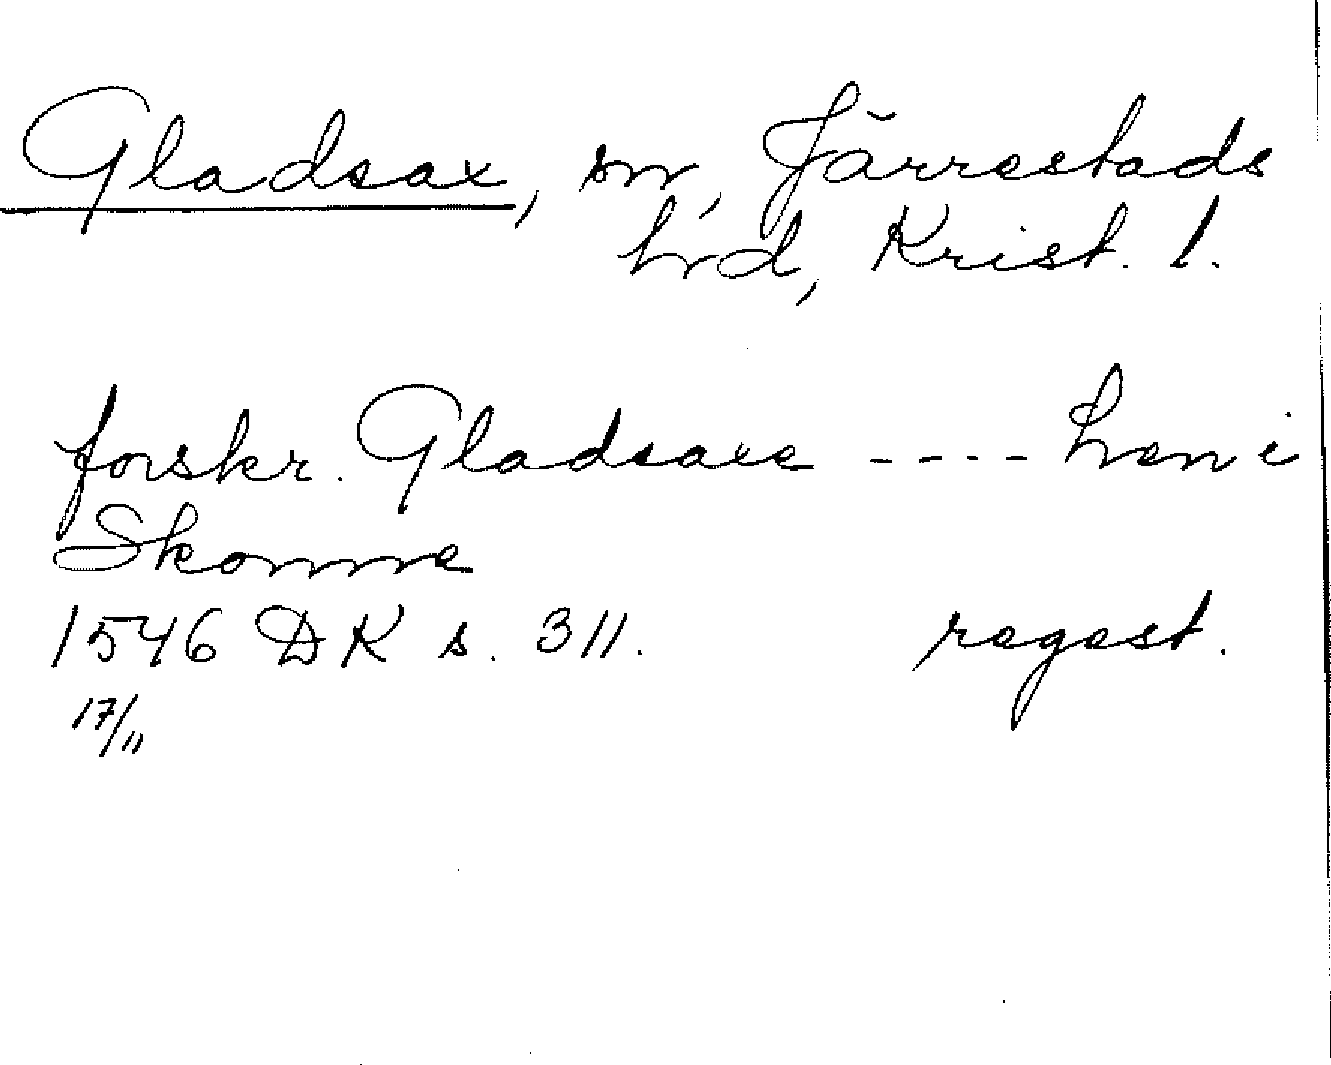 Gladsax, sn, Järrestads
hrd, Krist. l.
forskr. Gladsaxe ---- hen i
Skonne
1546 DK s. 311. regest.
17/11